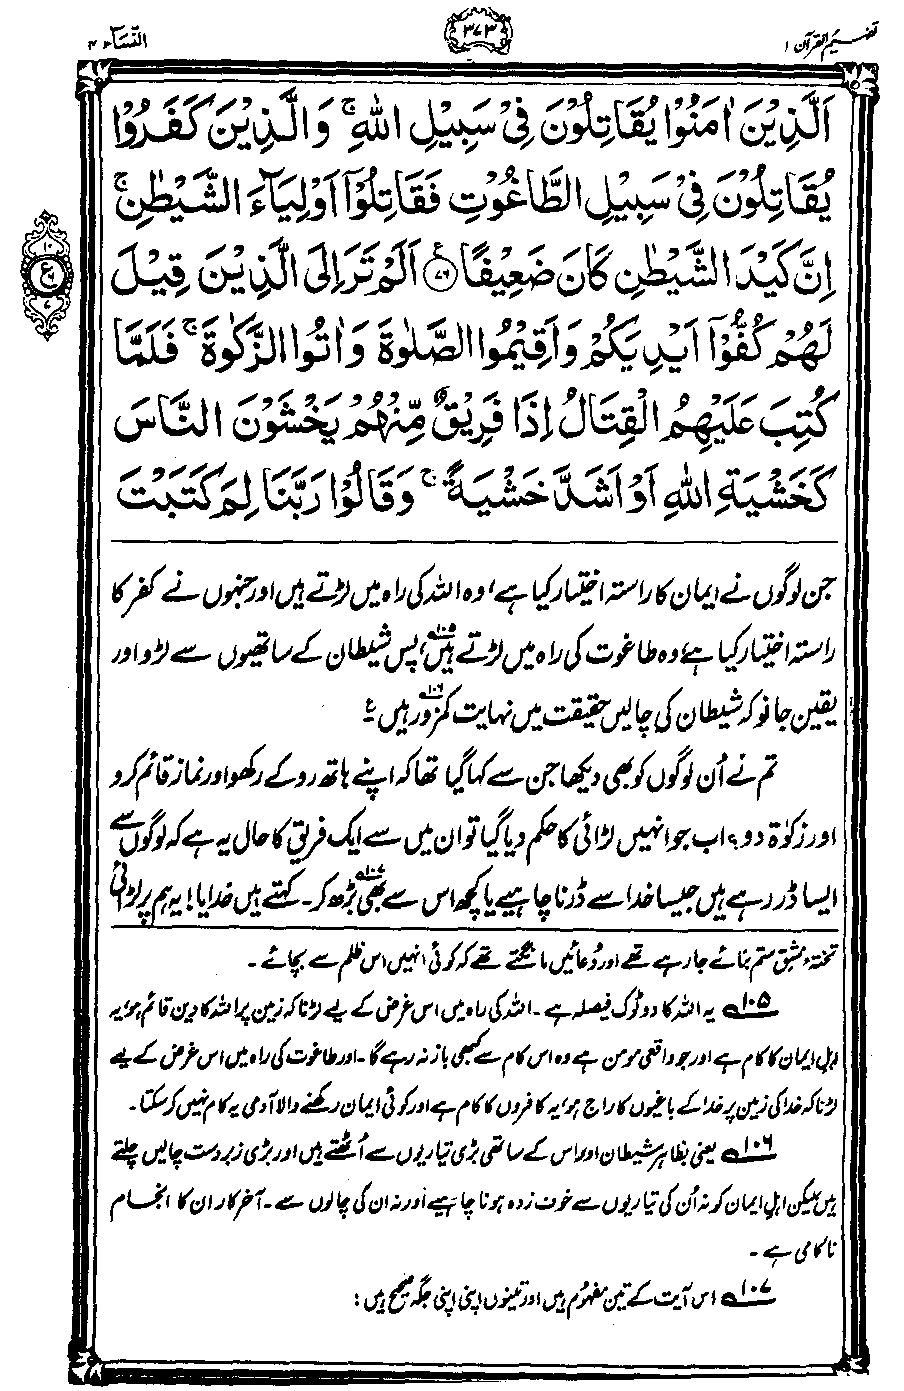 تفہیم القرآن ۱
۳۷۳
النّسَاء ۴
اَلَّذِيْنَ اٰمَنُوْا يُقَاتِلُوْنَ فِيْ سَبِيْلِ اللّٰهِ ۚ وَالَّذِيْنَ كَفَرُوْا
يُقَاتِلُوْنَ فِيْ سَبِيْلِ الطَّاغُوْتِ فَقَاتِلُوْٓا اَوْلِيَآءَ الشَّيْطٰنِ ۚ
اِنَّ كَيْدَ الشَّيْطٰنِ كَانَ ضَعِيْفًا ﴿۷۶﴾ اَلَمْ تَرَ اِلَى الَّذِيْنَ قِيْلَ
لَهُمْ كُفُّوْٓا اَيْدِيَكُمْ وَاَقِيْمُوا الصَّلٰوةَ وَاٰتُوا الزَّكٰوةَ ۚ فَلَمَّا
كُتِبَ عَلَيْهِمُ الْقِتَالُ اِذَا فَرِيْقٌ مِّنْهُمْ يَخْشَوْنَ النَّاسَ
كَخَشْيَةِ اللّٰهِ اَوْ اَشَدَّ خَشْيَةً ۚ وَقَالُوْا رَبَّنَا لِمَ كَتَبْتَ
جن لوگوں نے ایمان کا راستہ اختیار کیا ہے، وہ اللہ کی راہ میں لڑتے ہیں اور جنہوں نے کفر کا
راستہ اختیار کیا ہے، وہ طاغوت کی راہ میں لڑتے ہیں،۱۰۵ پس شیطان کے ساتھیوں سے لڑو اور
یقین جانو کہ شیطان کی چالیں حقیقت میں نہایت کمزور ہیں۔۱۰۶ ع
تم نے اُن لوگوں کو بھی دیکھا جن سے کہا گیا تھا کہ اپنے ہاتھ روکے رکھو اور نماز قائم کرو
اور زکوٰۃ دو؟ اب جو انہیں لڑائی کا حکم دیا گیا تو ان میں سے ایک فریق کا حال یہ ہے کہ لوگوں سے
ایسا ڈر رہے ہیں جیسا خدا سے ڈرنا چاہیے یا کچھ اس سے بھی بڑھ کر۔۱۰۷ کہتے ہیں خدایا! یہ ہم پر لڑائی
تختۂ مشقِ ستم بنائے جا رہے تھے اور دُعائیں مانگتے تھے کہ کوئی انہیں اس ظلم سے بچائے۔
۱۰۵ یہ اللہ کا دو ٹوک فیصلہ ہے۔ اللہ کی راہ میں اس غرض کے لیے لڑنا کہ زمین پر اللہ کا دین قائم ہو، یہ
اہلِ ایمان کا کام ہے اور جو واقعی مومن ہے وہ اس کام سے کبھی باز نہ رہے گا۔ اور طاغوت کی راہ میں اس غرض کے لیے
لڑنا کہ خدا کی زمین پر خدا کے باغیوں کا راج ہو، یہ کافروں کا کام ہے اور کوئی ایمان رکھنے والا آدمی یہ کام نہیں کر سکتا۔
۱۰۶ یعنی بظاہر شیطان اور اس کے ساتھی بڑی تیاریوں سے اُٹھتے ہیں اور بڑی زبردست چالیں چلتے
ہیں، لیکن اہلِ ایمان کو نہ اُن کی تیاریوں سے خوف زدہ ہونا چاہیے اور نہ ان کی چالوں سے۔ آخر کار ان کا انجام
ناکامی ہے۔
۱۰۷ اس آیت کے تین مفہوم ہیں اور تینوں اپنی اپنی جگہ صحیح ہیں: